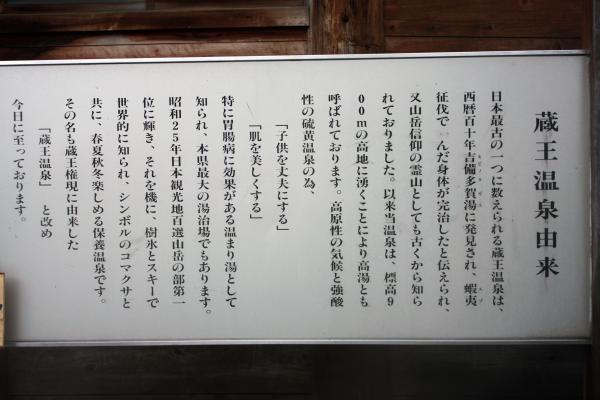 蔵王温泉由来
日本最古の一つに数えられる蔵王温泉は、
西暦百十年吉備多賀湯に発見され、蝦夷
征伐で んだ身体が完治したと伝えられ、
又山岳信仰の霊山としても古くから知ら
れておりました。以来当温泉は、標高9
00mの高地に湧くことにより高湯とも
呼ばれております。高原性の気候と強酸
性の硫黄温泉の為、
「子供を丈夫にする」
「肌を美しくする」
特に胃腸病に効果がある温まり湯として
知られ、本県最大の湯治場でもあります。
昭和25年日本観光地百選山岳の部第一
位に輝き、それを機に、樹氷とスキーで
世界的に知られ、シンボルのコマクサと
共に、春夏秋冬楽しめる保養温泉です。
その名も蔵王権現に由来した
「蔵王温泉」 と改め
今日に至っております。